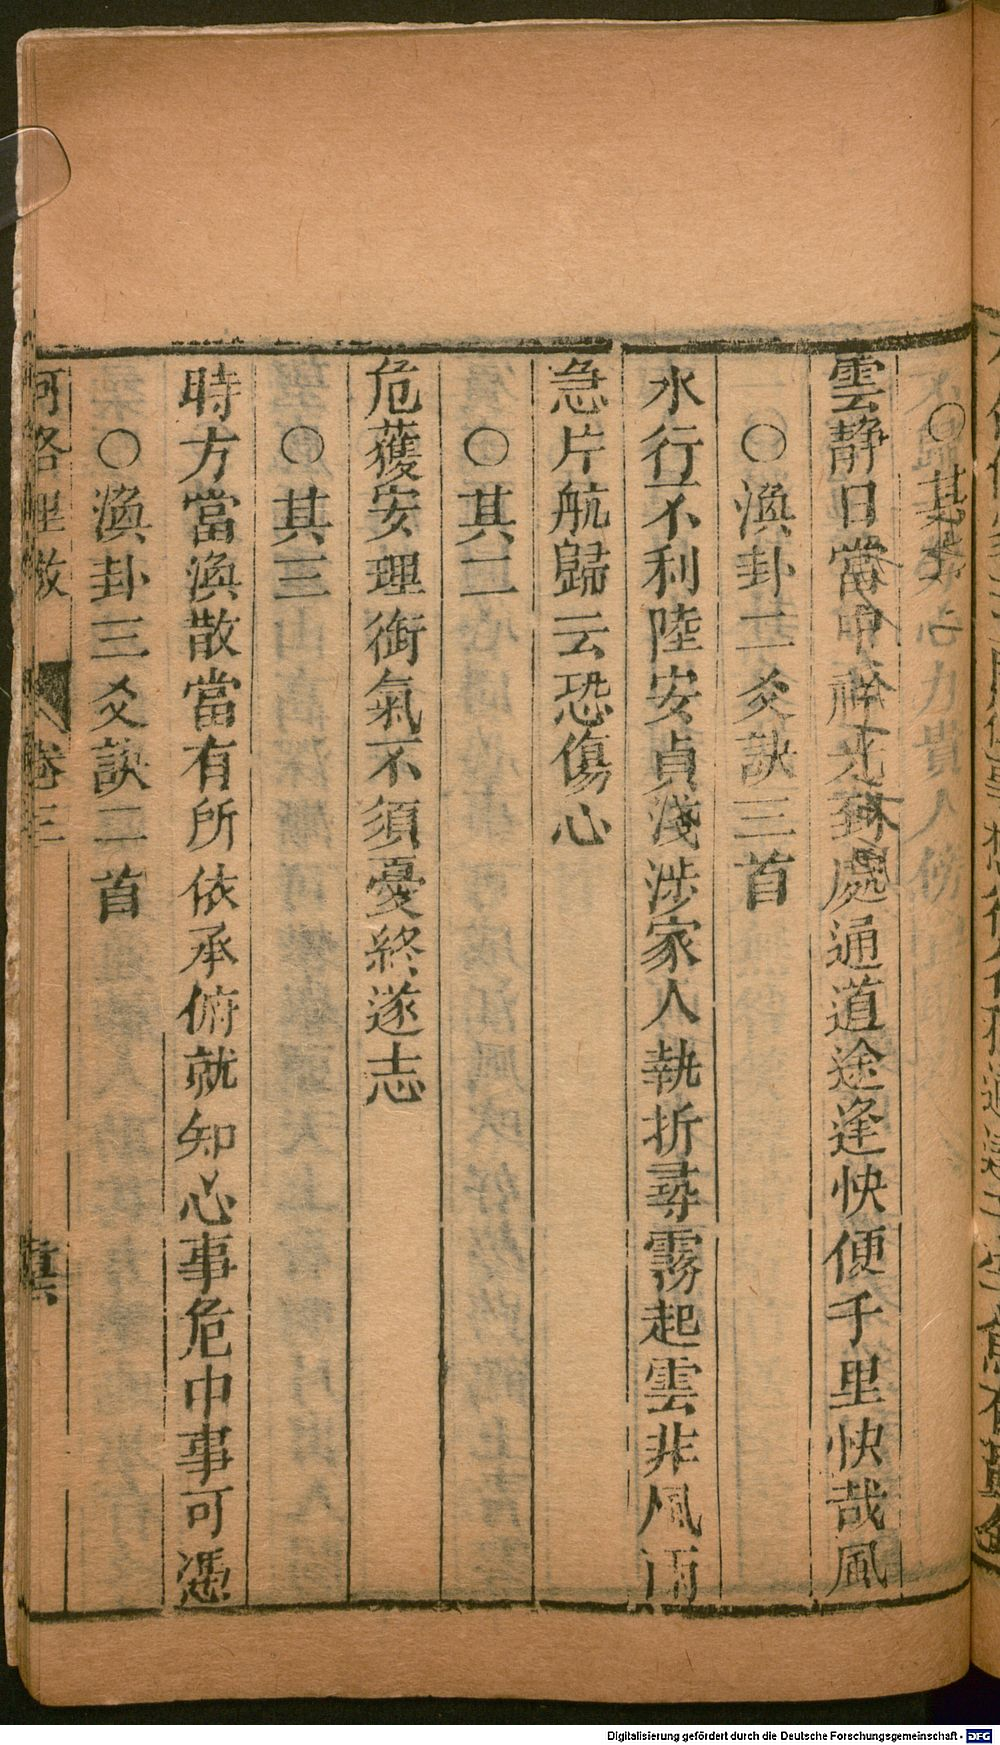 ○其二
雲靜日當中祥光到處通道途逢快便千里快哉風
○渙卦二爻訣三首
水行不利陸安貞淺涉家人執折尋霧起雲非風雨
急片航歸云恐傷心
○其二
危獲安理衛氣不須憂終遂志
○其三
時方當渙散當有所依承俯就知心事危中事可憑
○渙卦三爻訣二首
河洛理數
卷三
Digitalisierung gefördert durch die Deutsche Forschungsgemeinschaft - DFG